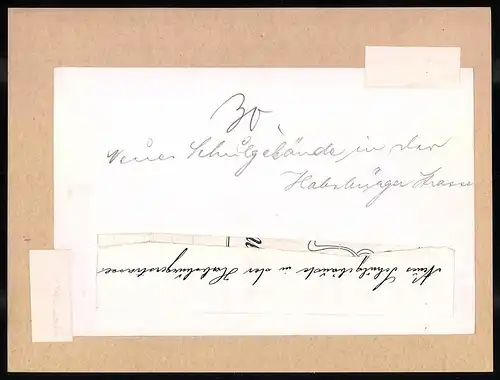 30.
Neues Schulgebäude in der
Habsbürger Strasse
Neues Schulgebäude in der Habsburgerstrasse